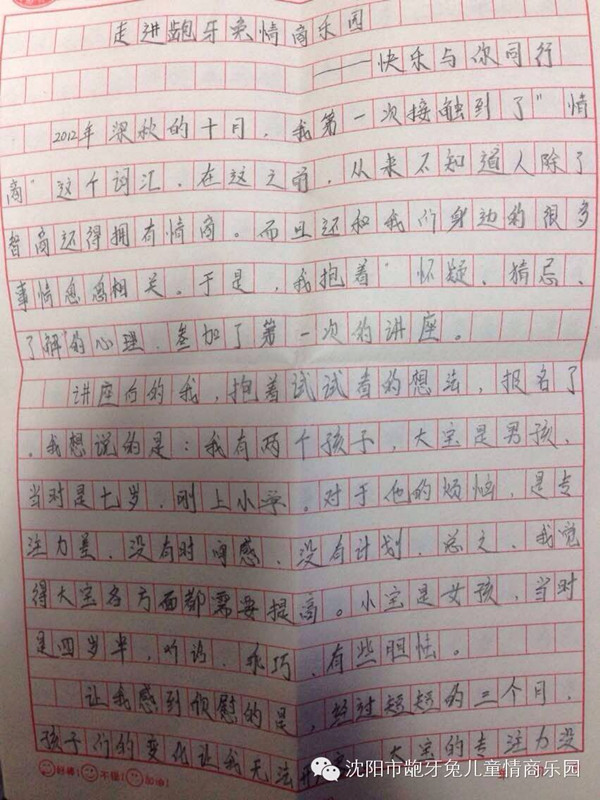 走进龅牙兔情商乐园
——快乐与你同行
2012年深秋的十月，我第一次接触到了"情
商"这个词汇，在这之前，从来不知道人除了
智商还得拥有情商。而且还和我们身边的很多
事情息息相关。于是，我抱着"怀疑、猜忌、
了解"的心理，参加了第一次的讲座。
讲座后的我，抱着试试看的想法，报名了
。我想说的是：我有两个孩子，大宝是男孩，
当时是七岁，刚上小学。对于他的烦恼，是专
注力差，没有时间感，没有计划，总之，我觉
得大宝各方面都需要提高。小宝是女孩，当时
是四岁半，听话，乖巧，有些胆怯。
让我感到欣慰的是，经过短短的三个月，
孩子们的变化让我无法 大宝的专注力没
好棒！不错！加油！
沈阳市龅牙兔儿童情商乐园